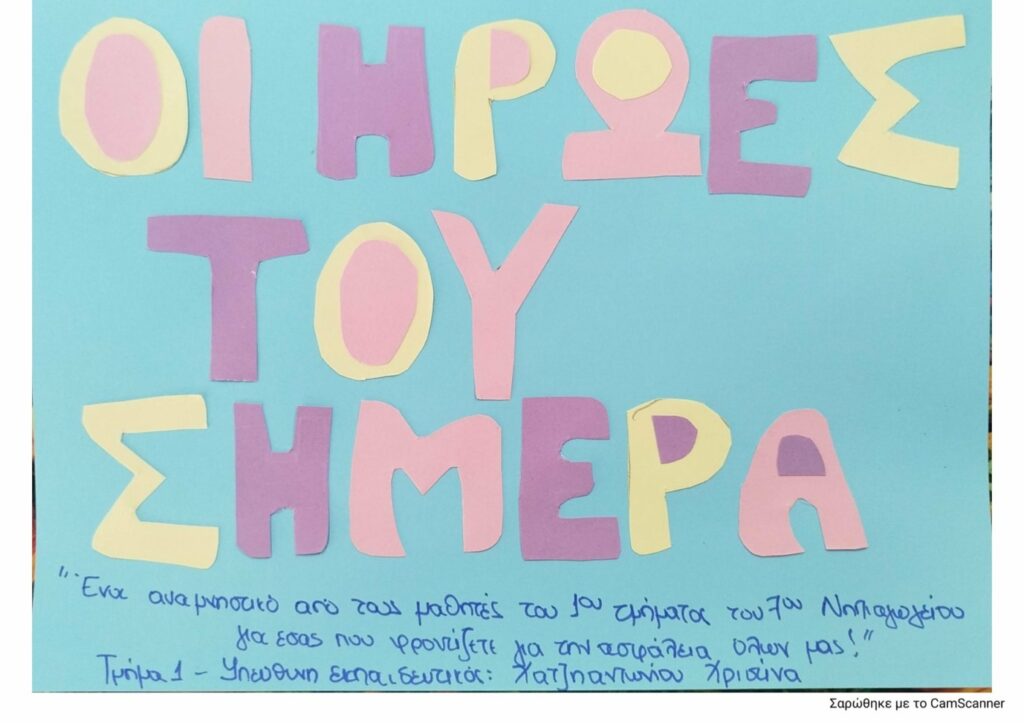 ΟΙ ΗΡΩΕΣ
ΤΟΥ
ΣΗΜΕΡΑ
"Ένα αναμνηστικό από τους μαθητές του 1ου τμήματος του 7ου Νηπιαγωγείου
για εσάς που φροντίζετε για την ασφάλεια όλων μας!"
Τμήμα 1 - Υπεύθυνη εκπαιδευτικός: Χατζηαντωνίου Χριστίνα
Σαρώθηκε με το CamScanner